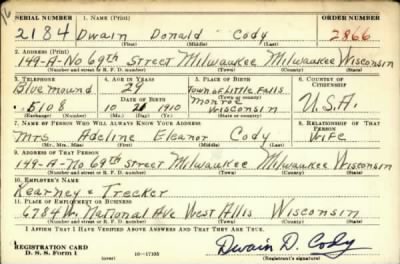 SERIAL NUMBER 1. NAME (Print) ORDER NUMBER
2184 Dwain Donald Cody 2866
(First) (Middle) (Last)
2. ADDRESS (Print)
149-A-No 69th Street Milwaukee Milwaukee Wisconsin
(Number and street or R. F. D. number) (Town) (County) (State)
3. TELEPHONE 4. AGE IN YEARS 5. PLACE OF BIRTH 6. COUNTRY OF CITIZENSHIP
Bluemound 29 Town of Little Falls
DATE OF BIRTH Monroe U.S.A.
5108 10 1910 Wisconsin
(Exchange) (Number) (Mo.) (Day) (Yr.) (State or country)
7. NAME OF PERSON WHO WILL ALWAYS KNOW YOUR ADDRESS 8. RELATIONSHIP OF THAT PERSON
Mrs Adeline Eleanor Cody Wife
(Mr., Mrs., Miss) (First) (Middle) (Last)
9. ADDRESS OF THAT PERSON
149-A-No 69th Street Milwaukee Milwaukee Wisconsin
(Number and street or R. F. D. number) (Town) (County) (State)
10. EMPLOYER'S NAME
Kearney & Trecker
11. PLACE OF EMPLOYMENT OR BUSINESS
6784 W. National Ave West Allis Wisconsin
(Number and street or R. F. D. number) (Town) (County) (State)
I AFFIRM THAT I HAVE VERIFIED ABOVE ANSWERS AND THAT THEY ARE TRUE.
REGISTRATION CARD
D. S. S. Form 1 (over) 16—17105 Dwain D. Cody
(Registrant's signature)